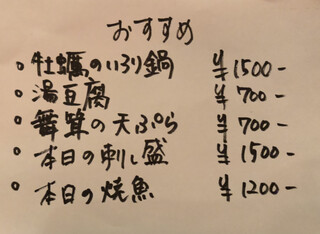 おすすめ
○ 牡蠣のいろり鍋 ¥1500-
○ 湯豆腐 ¥700-
○ 舞茸の天ぷら ¥700-
○ 本日の刺し盛 ¥1500-
○ 本日の焼魚 ¥1200-